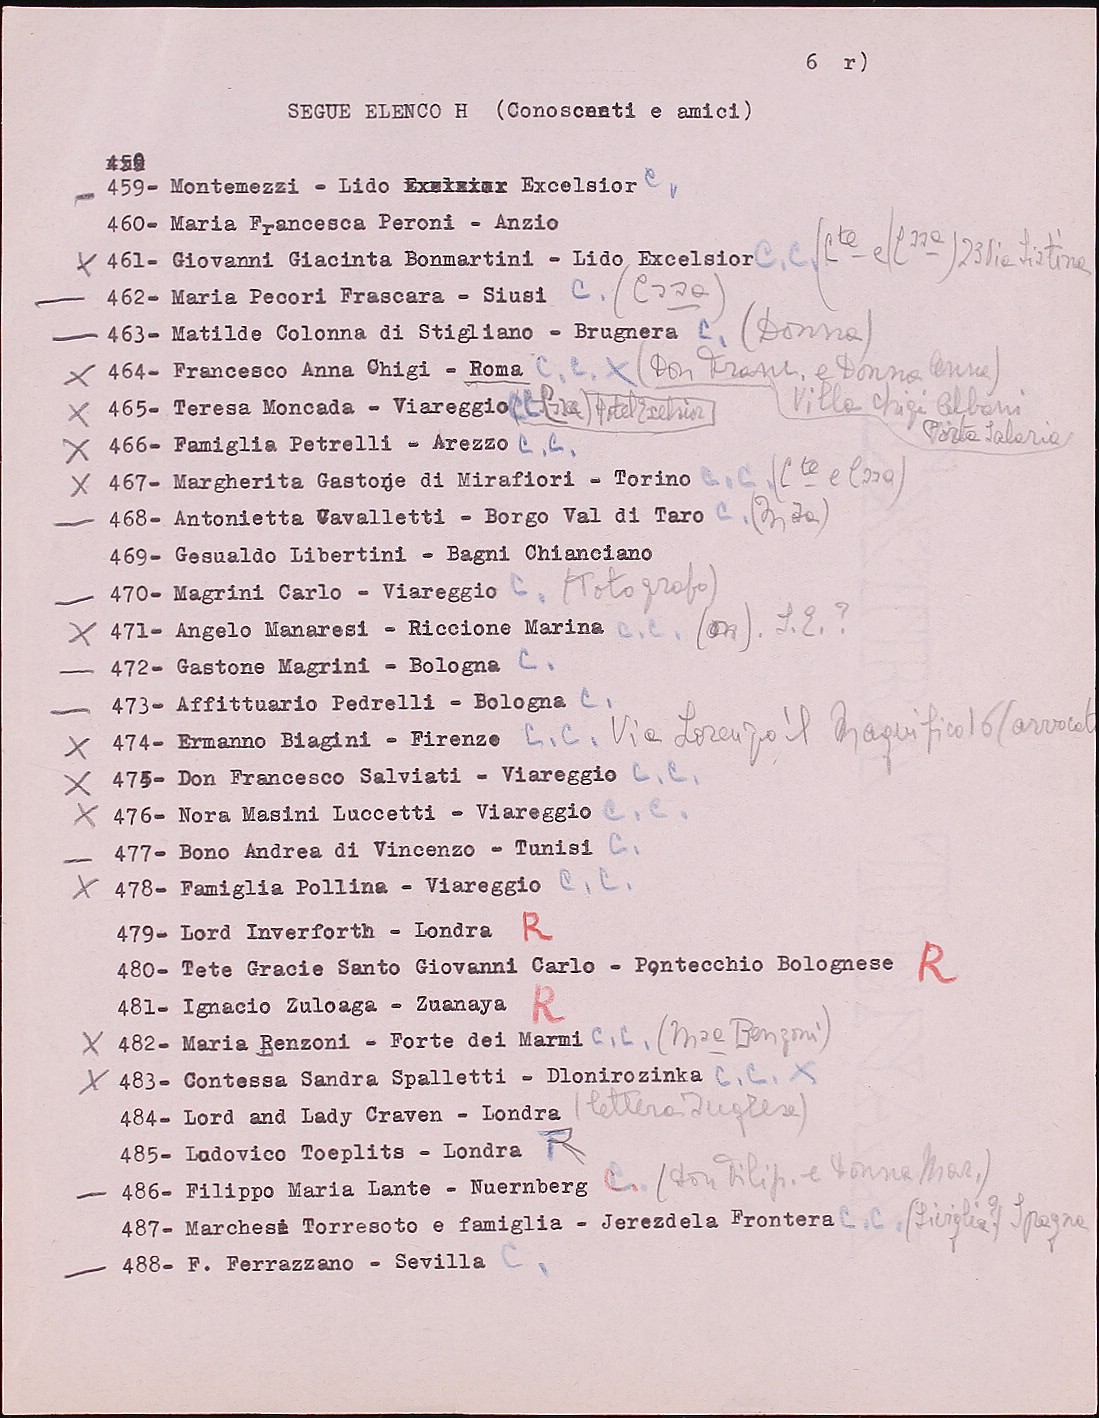 6 r)
SEGUE ELENCO H (Conoscenti e amici)
459
459- Montemezzi - Lido Excelsior C.
460- Maria Francesca Peroni - Anzio
X 461- Giovanni Giacinta Bonmartini - Lido Excelsior C.C. (Cte e Cssa) 23 Via Sistina
— 462- Maria Pecori Frascara - Siusi C. (Cssa)
— 463- Matilde Colonna di Stigliano - Brugnera C. (Donna)
X 464- Francesco Anna Chigi - Roma C.C. X (Don Franc. e Donna Anna)
Villa Chigi Albani
Porta Salaria
X 465- Teresa Moncada - Viareggio Hotel Excelsior
X 466- Famiglia Petrelli - Arezzo C.C.
X 467- Margherita Gastone di Mirafiori - Torino C.C. (Cte e Cssa)
— 468- Antonietta Cavalletti - Borgo Val di Taro C. (Msa)
469- Gesualdo Libertini - Bagni Chianciano
— 470- Magrini Carlo - Viareggio C. (Fotografo)
X 471- Angelo Manaresi - Riccione Marina C.C. (on). S.E.?
— 472- Gastone Magrini - Bologna C.
— 473- Affittuario Pedrelli - Bologna C.
X 474- Ermanno Biagini - Firenze C.C. Via Lorenzo il Magnifico 16 (avvocat
X 475- Don Francesco Salviati - Viareggio C.C.
X 476- Nora Masini Luccetti - Viareggio C.C.
— 477- Bono Andrea di Vincenzo - Tunisi C.
X 478- Famiglia Pollina - Viareggio C.C.
479- Lord Inverforth - Londra R
480- Tete Gracie Santo Giovanni Carlo - Pontecchio Bolognese R
481- Ignacio Zuloaga - Zuanaya R
X 482- Maria Benzoni - Forte dei Marmi C.C. (Msa Benzoni)
X 483- Contessa Sandra Spalletti - Dlonirozinka C.C. X
484- Lord and Lady Craven - Londra (lettera Inglese)
485- Lodovico Toeplits - Londra R
— 486- Filippo Maria Lante - Nuernberg C. (Don Filip. e Donna Mar.)
487- Marchesi Torresoto e famiglia - Jerezdela Frontera C.C. (Siviglia?) Spagna
— 488- F. Ferrazzano - Sevilla C.